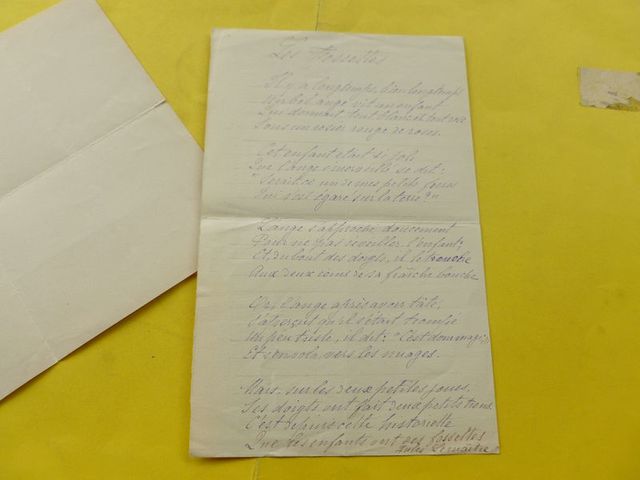 Les Fossettes
Il y a longtemps, bien longtemps
Un bel ange vit un enfant
Qui dormait tout blanc et tout rose
Sous un rosier rouge de roses.
Cet enfant était si joli
Que l'ange émerveillé se dit :
"Serait-ce un de mes petits frères
Qui s'est égaré sur la terre ?"
L'ange s'approche doucement
Pour ne pas réveiller l'enfant ;
Et du bout des doigts, il le touche
Aux deux coins de sa fraîche bouche
Or, l'ange après avoir tâté,
S'aperçut qu'il s'était trompé
Un peu triste, il dit : "C'est dommage"
Et s'envola vers les nuages.
Mais, sur les deux petites joues,
Ses doigts ont fait deux petits trous
C'est depuis cette historiette
Que les enfants ont des fossettes
Jules Lemaître